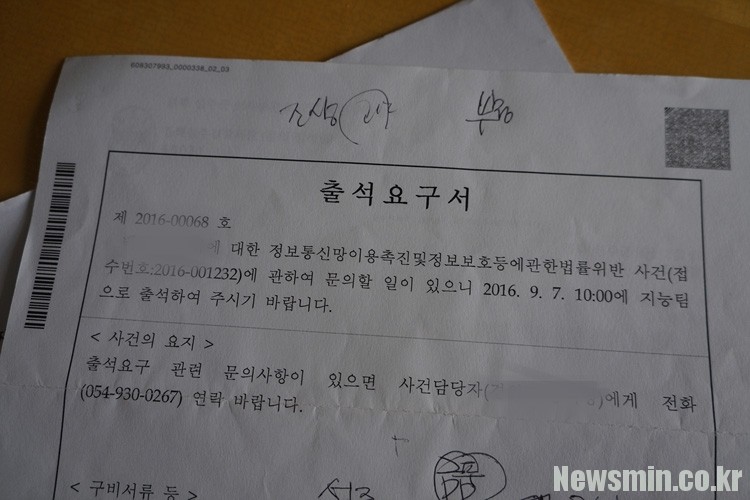 608307993_0000338_02_03
출석요구서
제 2016-00068 호
에 대한 정보통신망이용촉진및정보보호등에관한법률위반 사건(접
수번호:2016-001232)에 관하여 문의할 일이 있으니 2016. 9. 7. 10:00에 지능팀
으로 출석하여 주시기 바랍니다.
< 사건의 요지 >
출석요구 관련 문의사항이 있으면 사건담당자( )에게 전화
(054-930-0267) 연락 바랍니다.
< 구비서류 등 >
Newsmin.co.kr